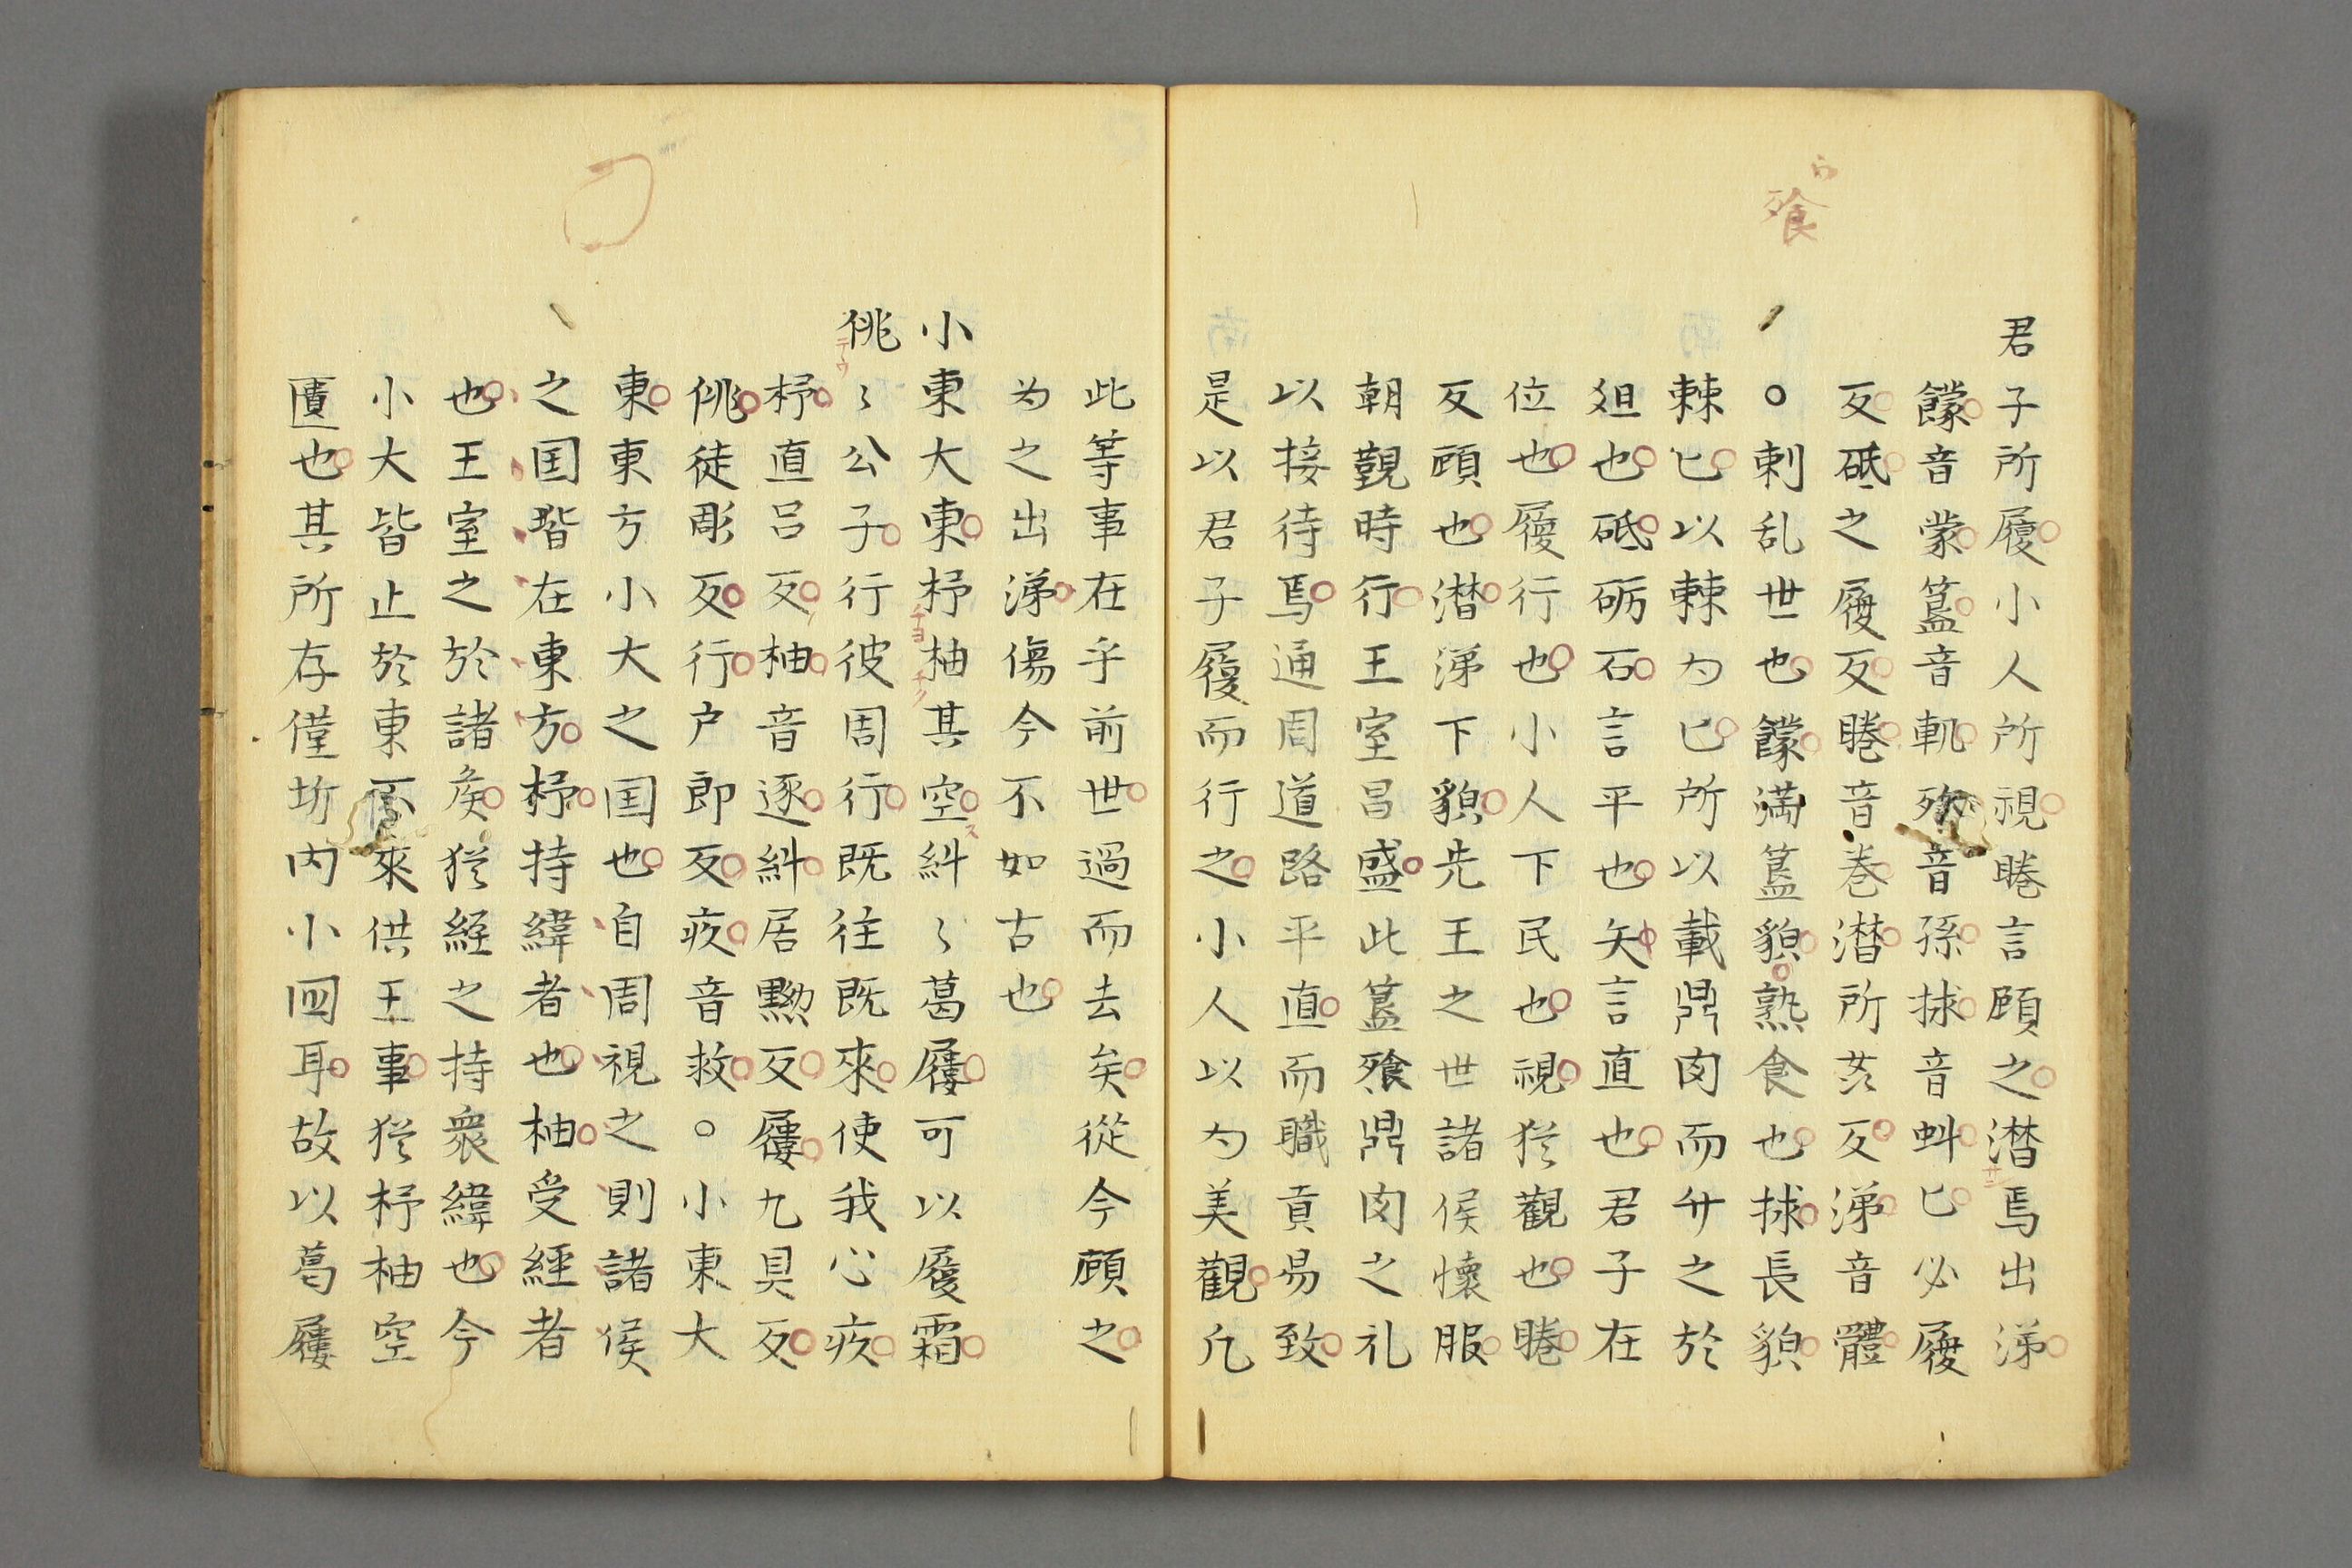 飱
君子所履小人所視睠言顧之潸焉出涕
饛音蒙簋音軌飱音孫捄音虯匕必履
反砥之履反睠音巻潸所姦反涕音體
○刺乱世也饛満簋貌熟食也捄長貌
棘匕以棘为匕所以載鼎肉而升之於
俎也砥砺石言平也矢言直也君子在
位也履行也小人下民也視犹觀也睠
反顧也潸涕下貌先王之世諸侯懷服
朝觀時行王室昌盛此簋飱鼎肉之礼
以接待焉通周道路平直而職貢易致
是以君子履而行之小人以为美觀凡
此等事在乎前世過而去矣從今顧之
为之出涕傷今不如古也
小東大東杼柚其空糾〻葛屨可以履霜
佻〻公子行彼周行既往既來使我心疚
杼直呂反柚音逐糾居黝反屨九具反
佻徒彫反行户郎反疚音救○小東大
東東方小大之国也自周視之則諸侯
之国皆在東方杼持緯者也柚受經者
也王室之於諸矦犹經之持衆緯也今
小大皆止於東不來供王事犹杼柚空
匱也其所存僅圻内小国耳故以葛屨